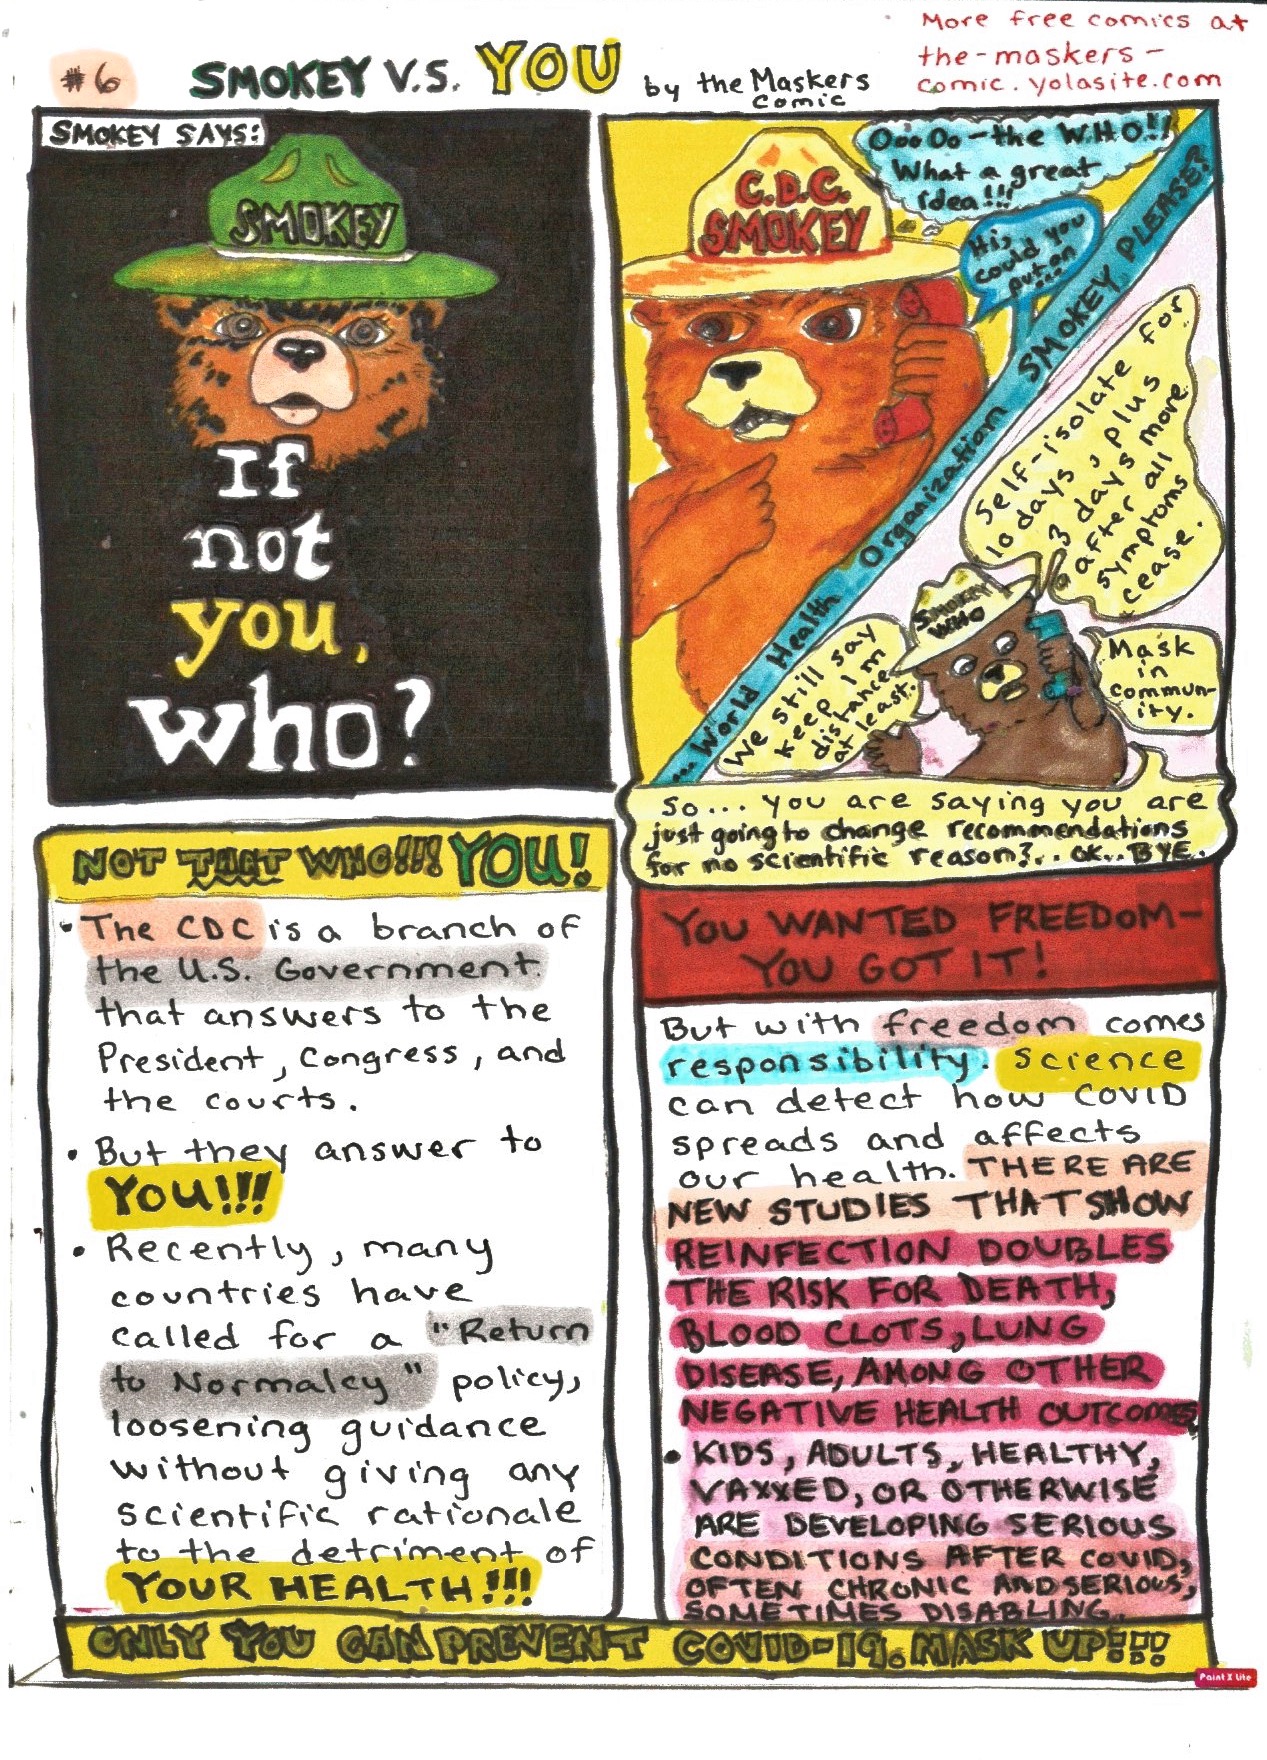 #6
SMOKEY V.S. YOU by the Maskers
Comic
More free comics at
the-maskers-
comic.yolasite.com
SMOKEY SAYS:
SMOKEY
If
not
you,
who?
C.D.C.
SMOKEY
OooOo-the W.H.O!!
What a great
idea!!!
Hi,
could you
put on
...
...World Health Organization SMOKEY PLEASE?
Self-isolate for
10 days, plus
3 days more
after all
symptoms
cease.
SMOKEY
WHO
We still say
keep 1 m
distance
at least.
Mask
in
commun-
ity.
So... you are saying you are
just going to change recommendations
for no scientific reason?.. OK.. BYE.
NOT THAT WHO!!! YOU!
• The CDC is a branch of
the U.S. Government
that answers to the
President, Congress, and
the courts.
• But they answer to
YOU!!!
• Recently, many
countries have
called for a "Return
to Normalcy" policy,
loosening guidance
without giving any
scientific rationale
to the detriment of
YOUR HEALTH!!!
YOU WANTED FREEDOM-
YOU GOT IT!
But with freedom comes
responsibility. Science
can detect how COVID
spreads and affects
our health. THERE ARE
NEW STUDIES THAT SHOW
REINFECTION DOUBLES
THE RISK FOR DEATH,
BLOOD CLOTS, LUNG
DISEASE, AMONG OTHER
NEGATIVE HEALTH OUTCOMES
• KIDS, ADULTS, HEALTHY,
VAXXED, OR OTHERWISE
ARE DEVELOPING SERIOUS
CONDITIONS AFTER COVID,
OFTEN CHRONIC AND SERIOUS,
SOMETIMES DISABLING.
ONLY YOU CAN PREVENT COVID-19. MASK UP!!!
Paint X Lite